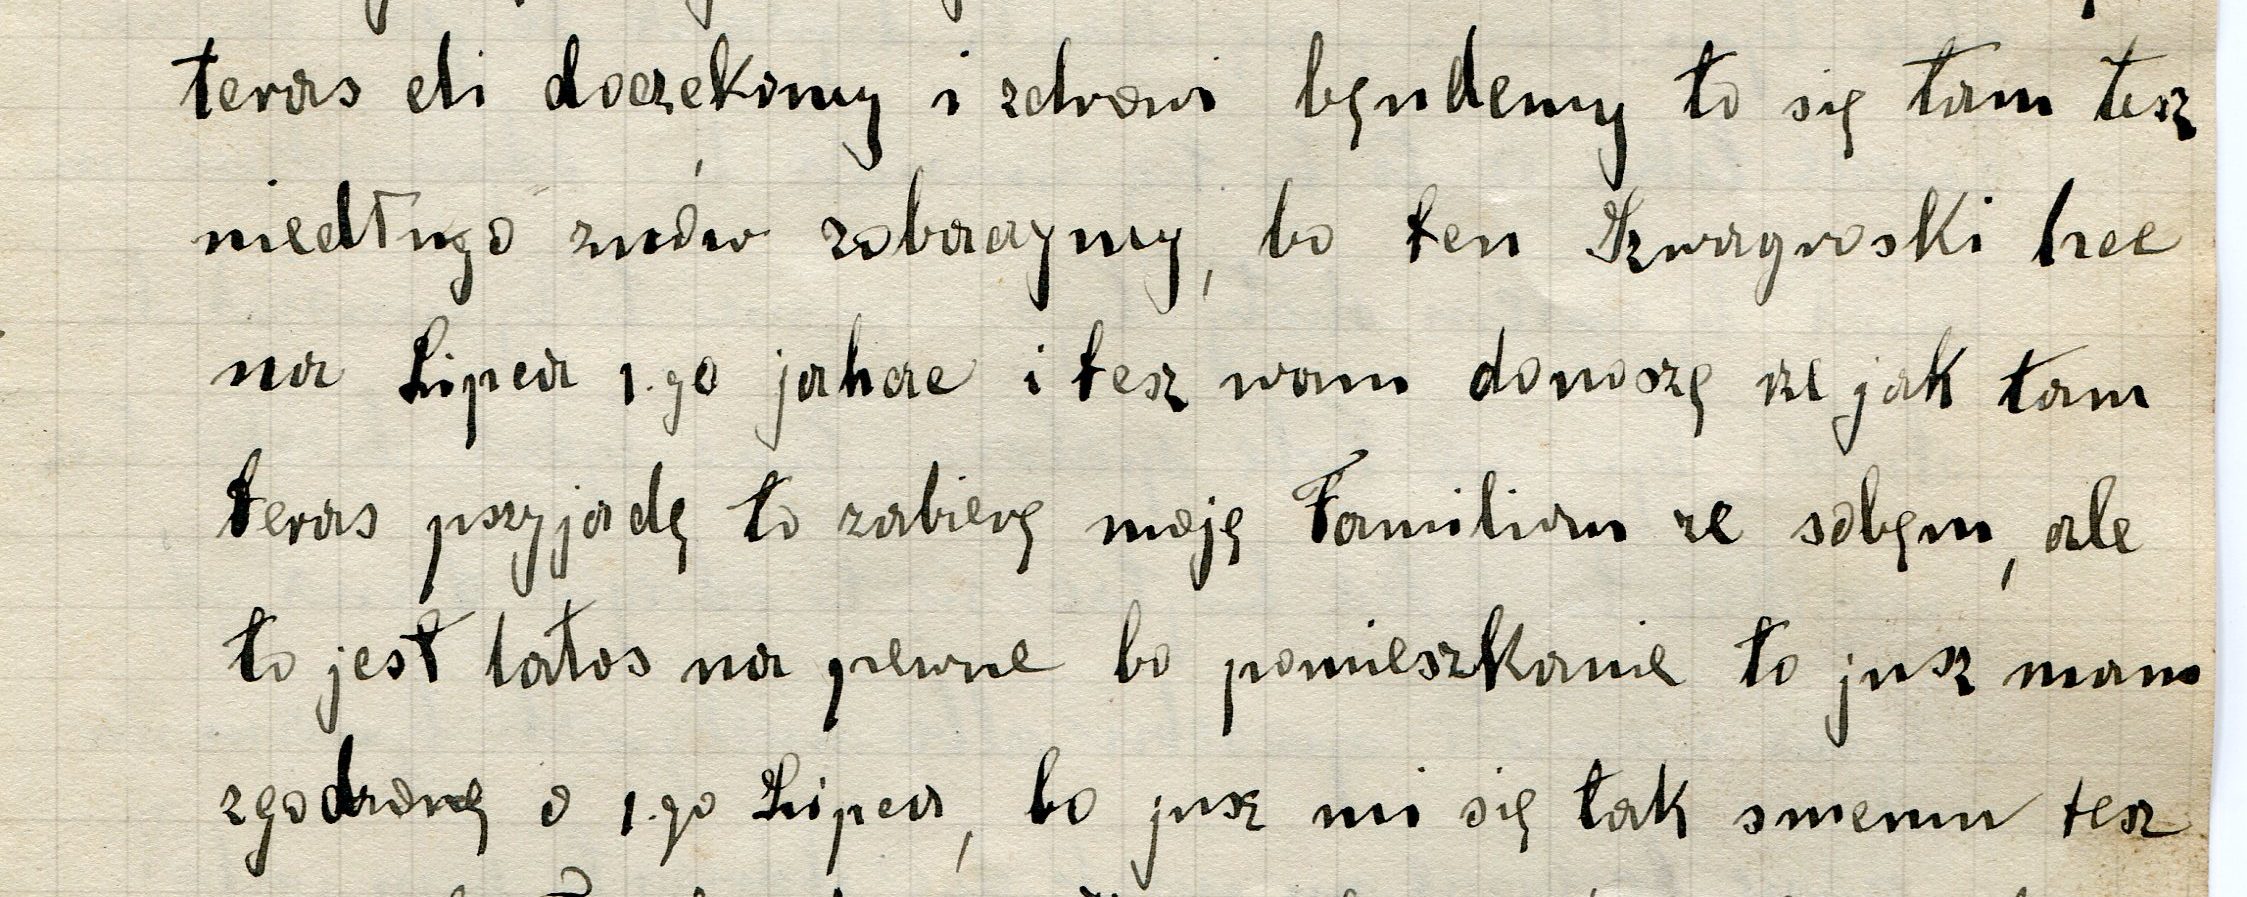 teras eli doczekamy i zdrowi byndemy to się tam tesz
niedługo znów zobaczymy, bo ten Szwagroski hce
na Lipca 1.go jahac i tesz wam donoszę że jak tam
teras pszyjadę to zabierę moję Familiam ze sobęm, ale
to jest latos na pewne bo pomieszkanie to jusz mam
zgodzonę o 1.go Lipca, bo jusz mi się tak smemu tesz